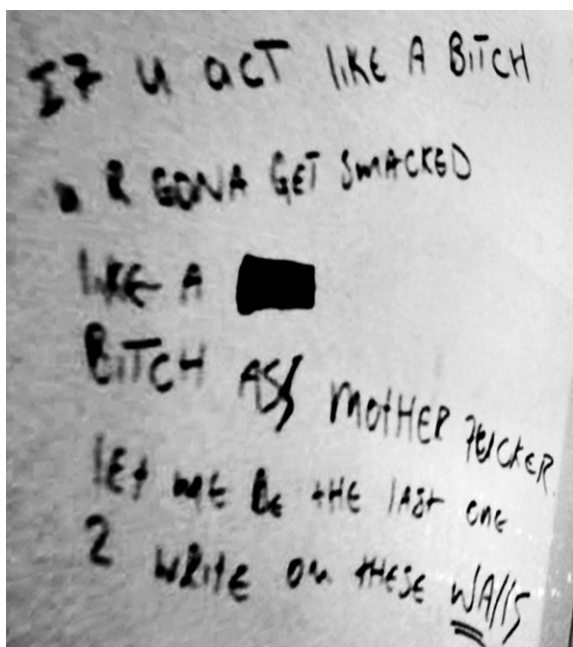 If u act like A BiTCH
R GONA GET SMACKED
like A
BiTCH ASS MOTHER FUCKER
let me Be the last one
2 write on these walls